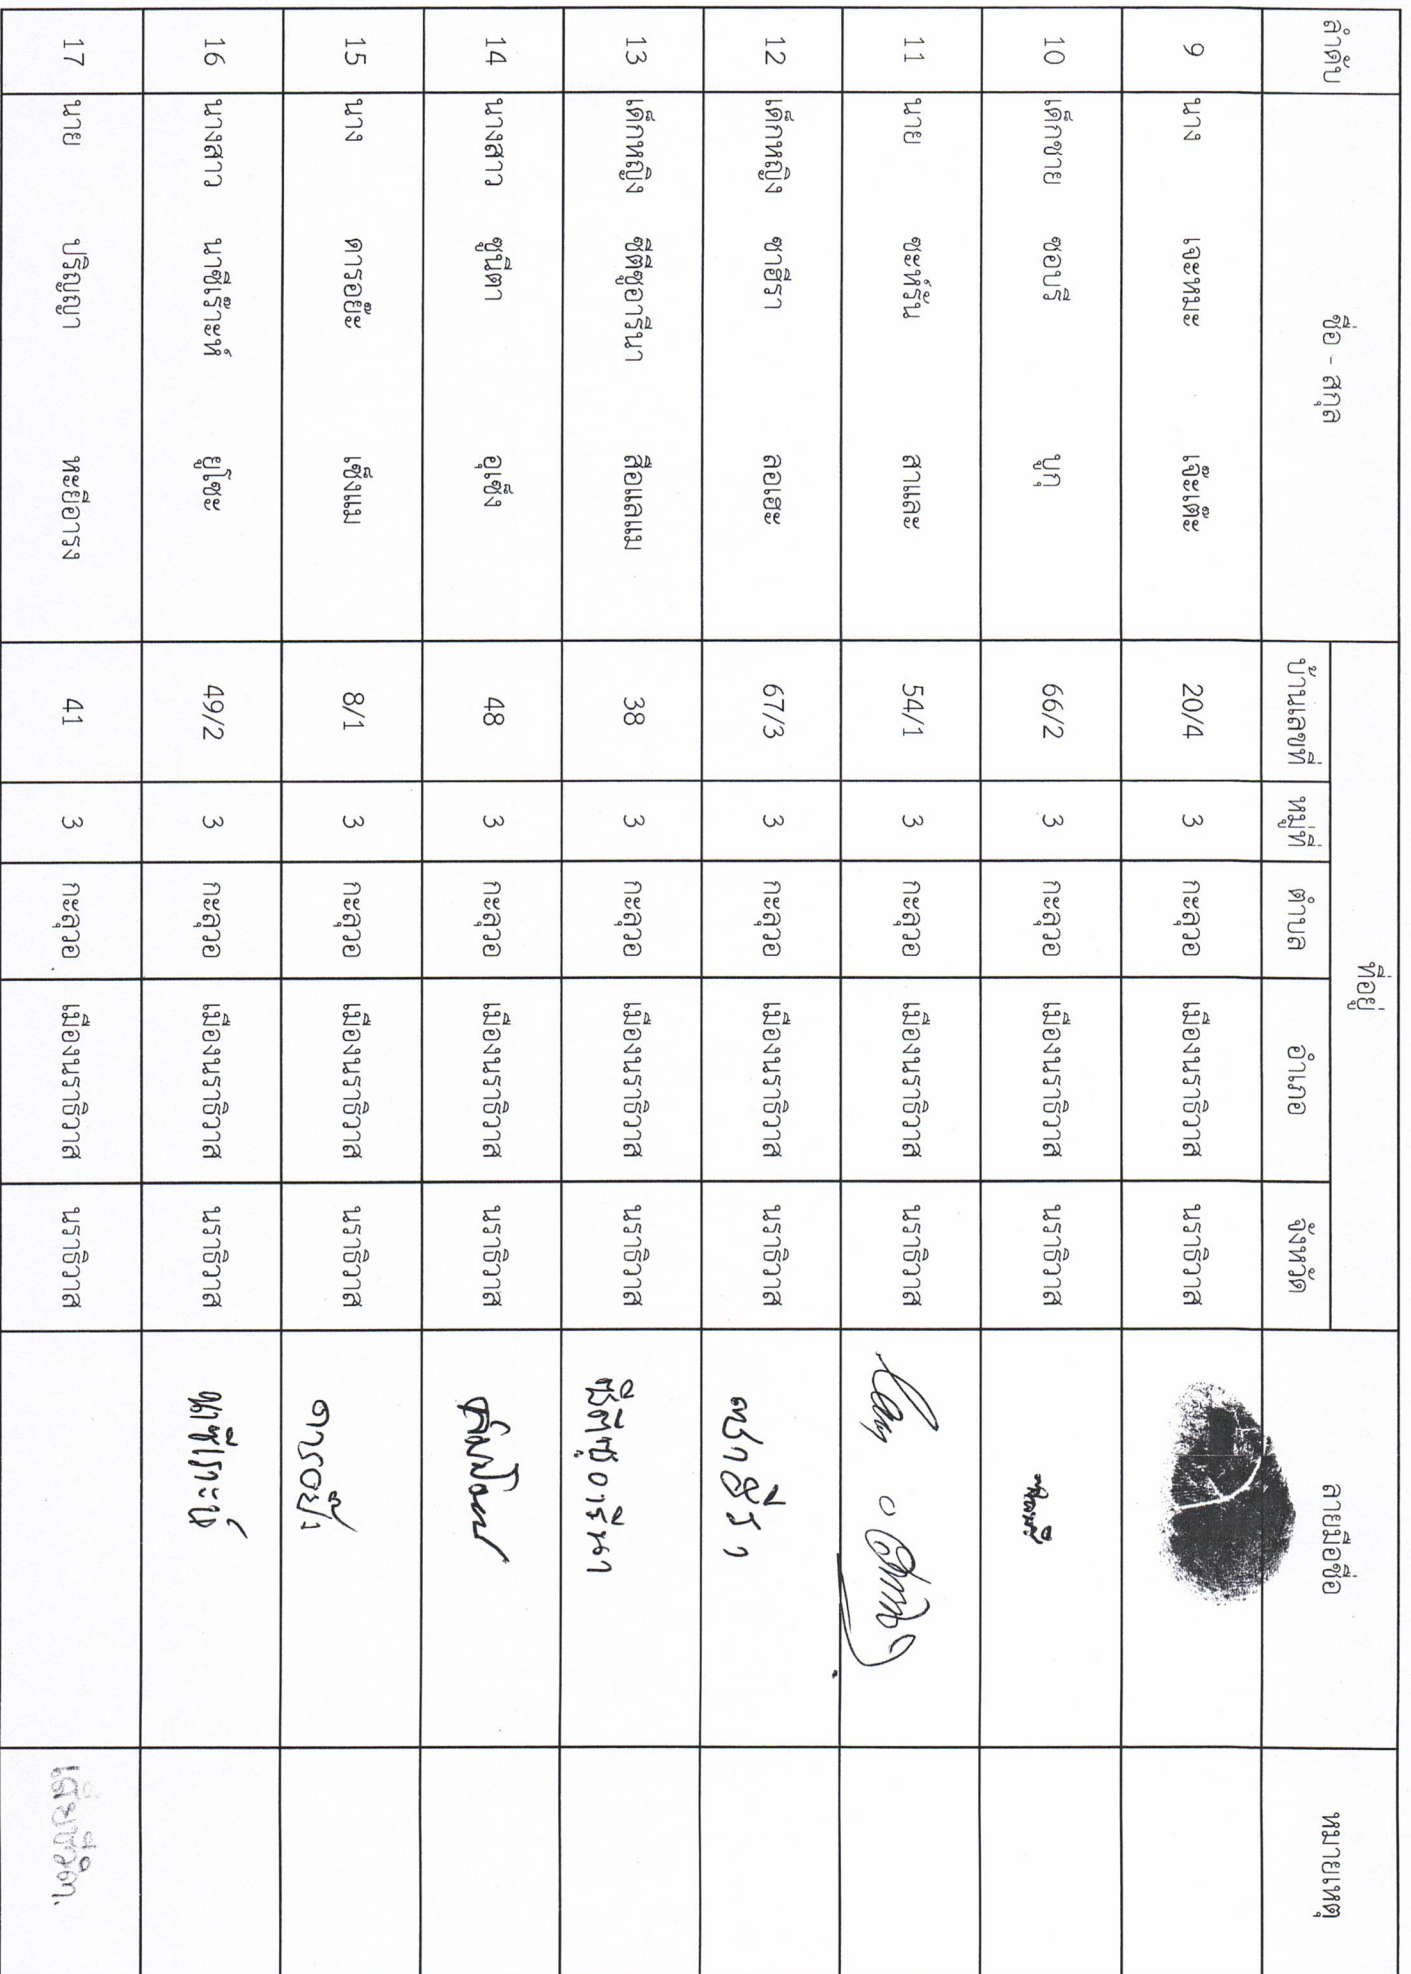 ลำดับ ชื่อ - สกุล ที่อยู่ ลายมือชื่อ หมายเหตุ
บ้านเลขที่ หมู่ที่ ตำบล อำเภอ จังหวัด
9 นาง เจะหมะ เจ๊ะเต๊ะ 20/4 3 กะลุวอ เมืองนราธิวาส นราธิวาส
10 เด็กชาย ซอบรี บูกุ 66/2 3 กะลุวอ เมืองนราธิวาส นราธิวาส
11 นาย ซะห์รัน สาและ 54/1 3 กะลุวอ เมืองนราธิวาส นราธิวาส
12 เด็กหญิง ซาฮีรา ลอเฮะ 67/3 3 กะลุวอ เมืองนราธิวาส นราธิวาส ซาฮีรา
13 เด็กหญิง ซีตีซูอารีนา สือแลแม 38 3 กะลุวอ เมืองนราธิวาส นราธิวาส ซีตีซูอารีนา
14 นางสาว ซูนีตา อุเซ็ง 48 3 กะลุวอ เมืองนราธิวาส นราธิวาส
15 นาง ดารอย๊ะ เซ็งแม 8/1 3 กะลุวอ เมืองนราธิวาส นราธิวาส
16 นางสาว นาซีเร๊าะห์ ยูโซะ 49/2 3 กะลุวอ เมืองนราธิวาส นราธิวาส
17 นาย ปริญญา หะยีอารง 41 3 กะลุวอ เมืองนราธิวาส นราธิวาส เสียชีวิต.